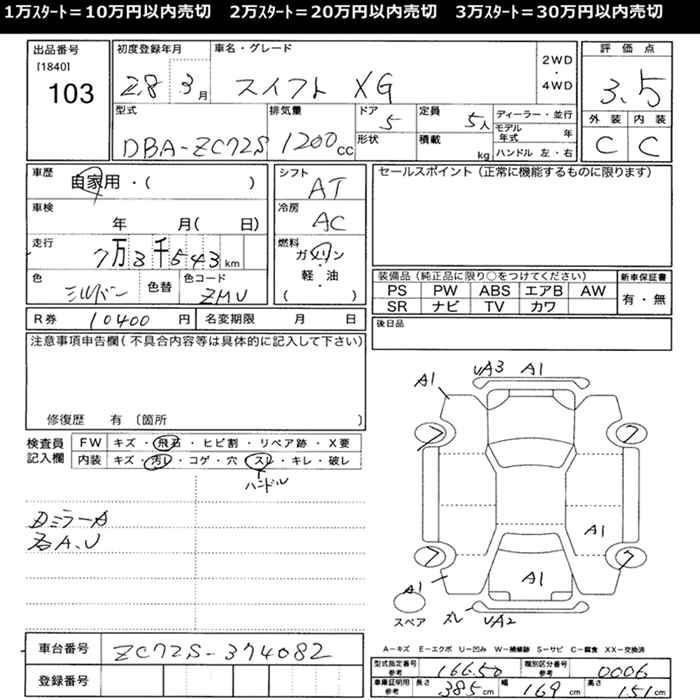 1万ｽﾀｰﾄ＝10万円以内売切　2万ｽﾀｰﾄ＝20万円以内売切　3万ｽﾀｰﾄ＝30万円以内売切
出品番号
[1840]
103
初度登録年月
28 3月
車名・グレード
スイフト XG
2WD
・
4WD
評価点
3.5
外装 内装
C C
型式
DBA-ZC72S
排気量
1200cc
ドア
5
形状
定員
5人
積載
kg
ディーラー・並行
モデル年式 年
ハンドル 左・右
車歴
自家用・( )
シフト
AT
セールスポイント（正常に機能するものに限ります）
車検
年 月( 日)
冷房
AC
走行
7万3千543km
燃料
ガソリン
・
軽・油
( )
色
シルバー
色替
色コード
ZMU
装備品（純正品に限り○をつけてください）
PS PW ABS エアB AW
SR ナビ TV カワ
新車保証書
有・無
R券 10400円
名変期限 月 日
後日品
注意事項申告欄（不具合内容等は具体的に記入して下さい）
修復歴 有〔箇所 〕
検査員記入欄
FW キズ・飛石・ヒビ割・リペア跡・X要
内装 キズ・汚れ・コゲ・穴・スレ・キレ・破レ
ハンドル
UA3 A1
A1
A1
A1
A1
スペア
スレ UA2
車台番号 ZC72S-374082
登録番号
A−キズ E−エクボ U−凹み W−補修跡 S−サビ C−腐食 XX−交換済
型式指定番号 参考 16650
類別区分番号 参考 0006
車庫証明用 参考 長さ 385cm 幅 169cm 高さ 151cm